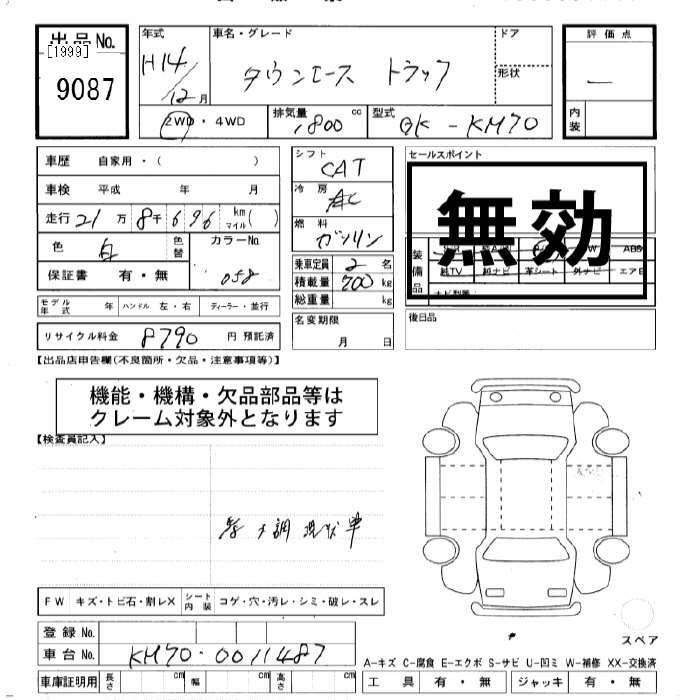 出品 No.
[1999]
9087
年式 車名・グレード ドア
H14 タウンエース トラック
12月 形状
2WD・4WD 排気量 1,800 cc 型式 GK-KM70
評価点
内装
車歴 自家用・( )
車検 平成 年 月
走行 21万 8千 696 km マイル( )
色 白 色替 カラーNo. 058
保証書 有・無
モデル年式 年 ハンドル 左・右 ディーラー・並行
リサイクル料金 8790 円 預託済
シフト CAT
冷房 AC
燃料 ガソリン
乗車定員 2 名
積載量 700 kg
総重量 kg
名変期限
月 日
セールスポイント
無効
装備品
純TV 純ナビ 革シート 外ナビ エアB
後日品
【出品店申告欄(不良箇所・欠品・注意事項等)】
機能・機構・欠品部品等は
クレーム対象外となります
【検査員記入】
不調 現状車
FW キズ・トビ石・割レX シート内装 コゲ・穴・汚レ・シミ・破レ・スレ
登録 No.
車台 No. KM70-0011487
車庫証明用 長さ cm 幅 cm 高さ cm
スペア
A-キズ C-腐食 E-エクボ S-サビ U-凹ミ W-補修 XX-交換済
工具 有・無 ジャッキ 有・無